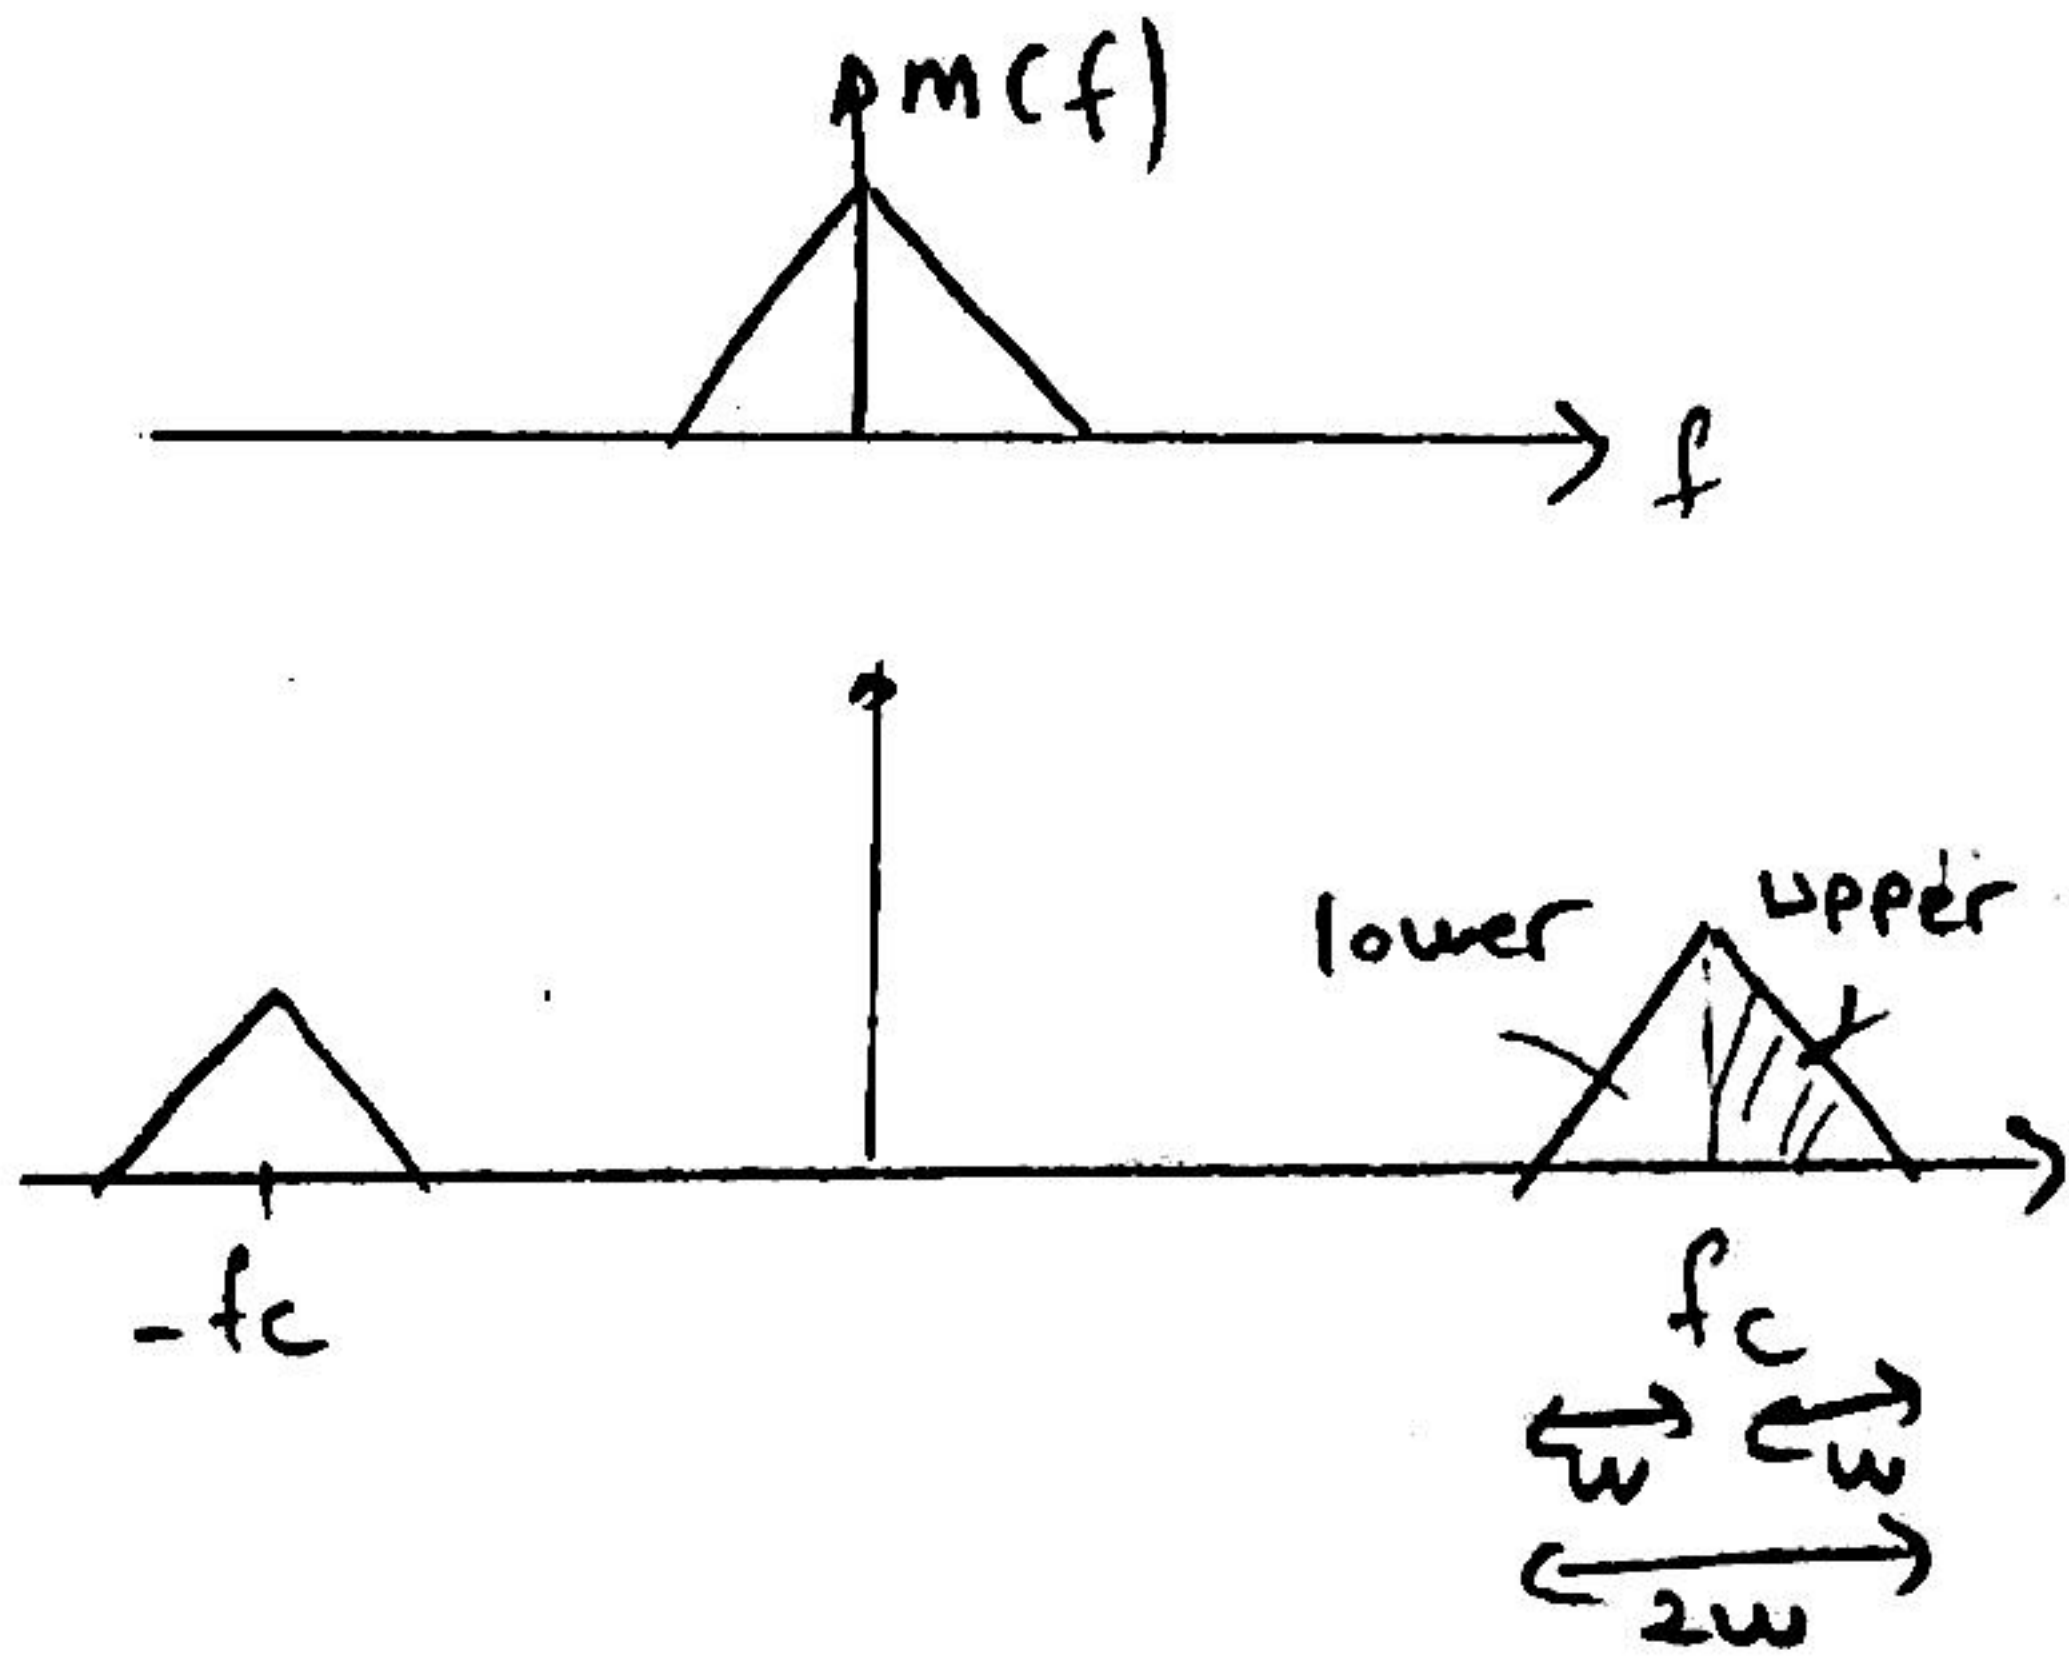 m(f)
f
lower
upper
-fc
fc
w
w
2w